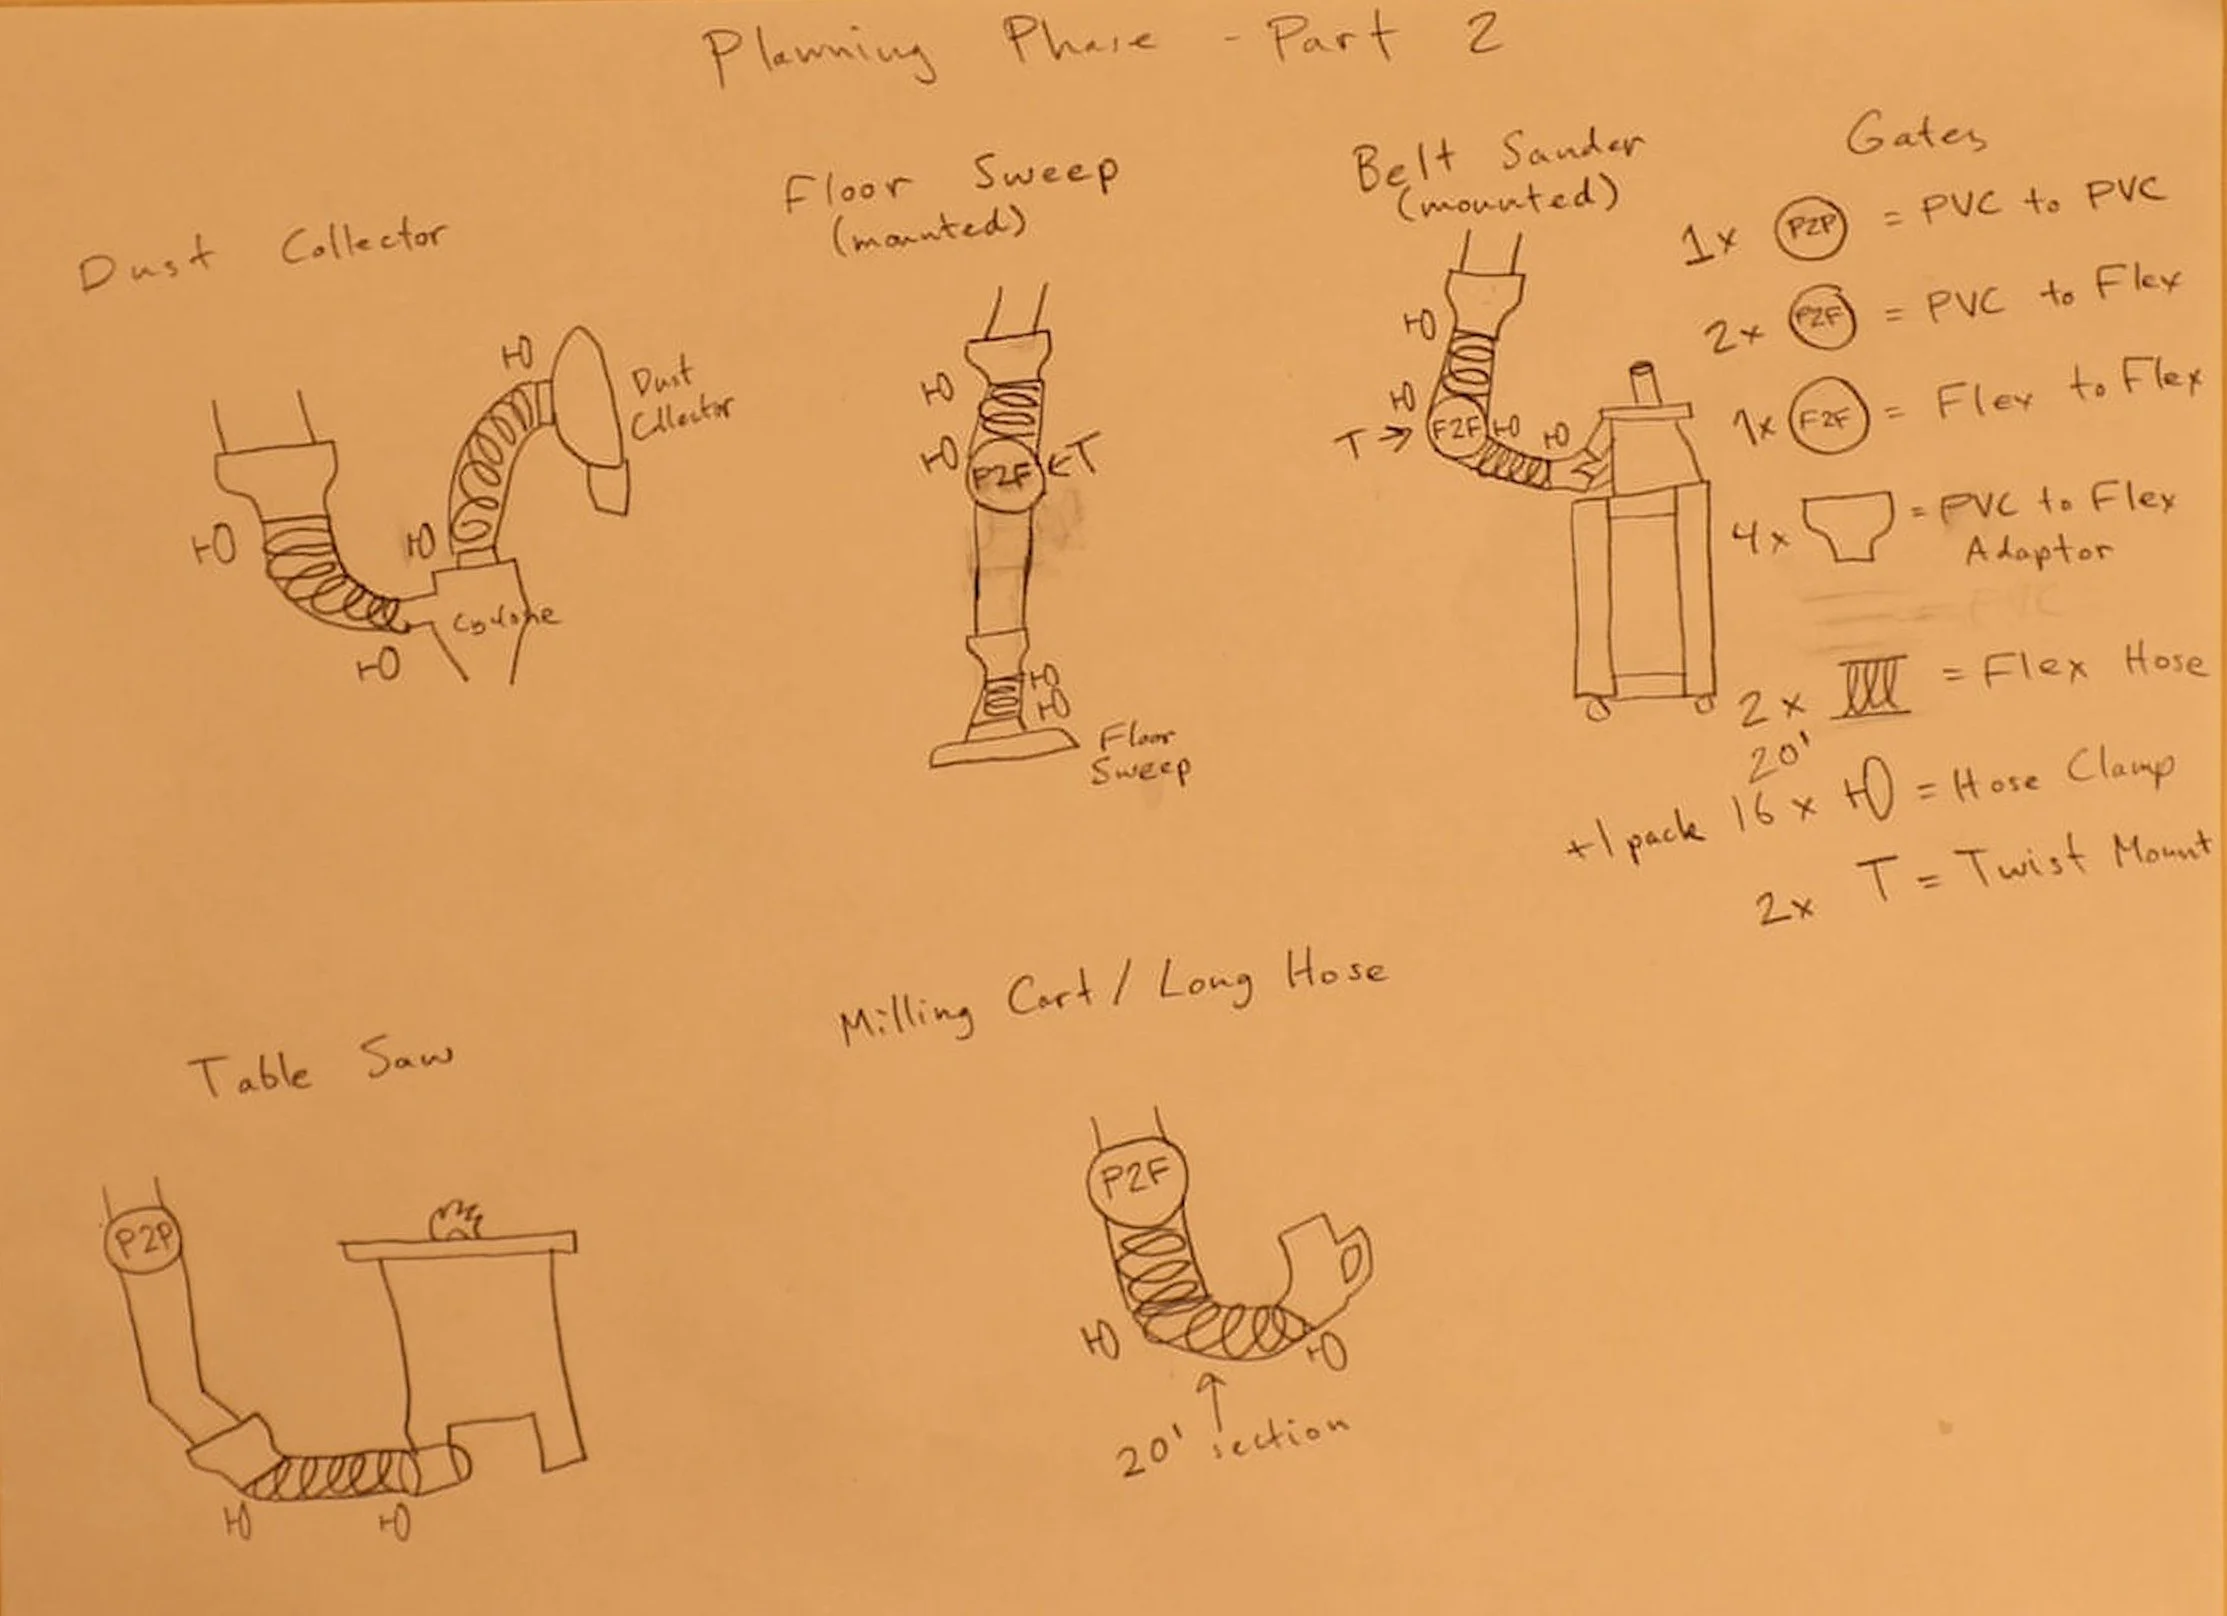 Planning Phase - Part 2
Dust Collector
Dust
Collector
Cyclone
Floor Sweep
(mounted)
P2F
←T
Floor
Sweep
Belt Sander
(mounted)
T →
F2F
Gates
1x P2P = PVC to PVC
2x P2F = PVC to Flex
1x F2F = Flex to Flex
4x = PVC to Flex
Adaptor
2x = Flex Hose
20'
+1 pack 16 x = Hose Clamp
2x T = Twist Mount
Table Saw
P2P
Milling Cart / Long Hose
P2F
20' section